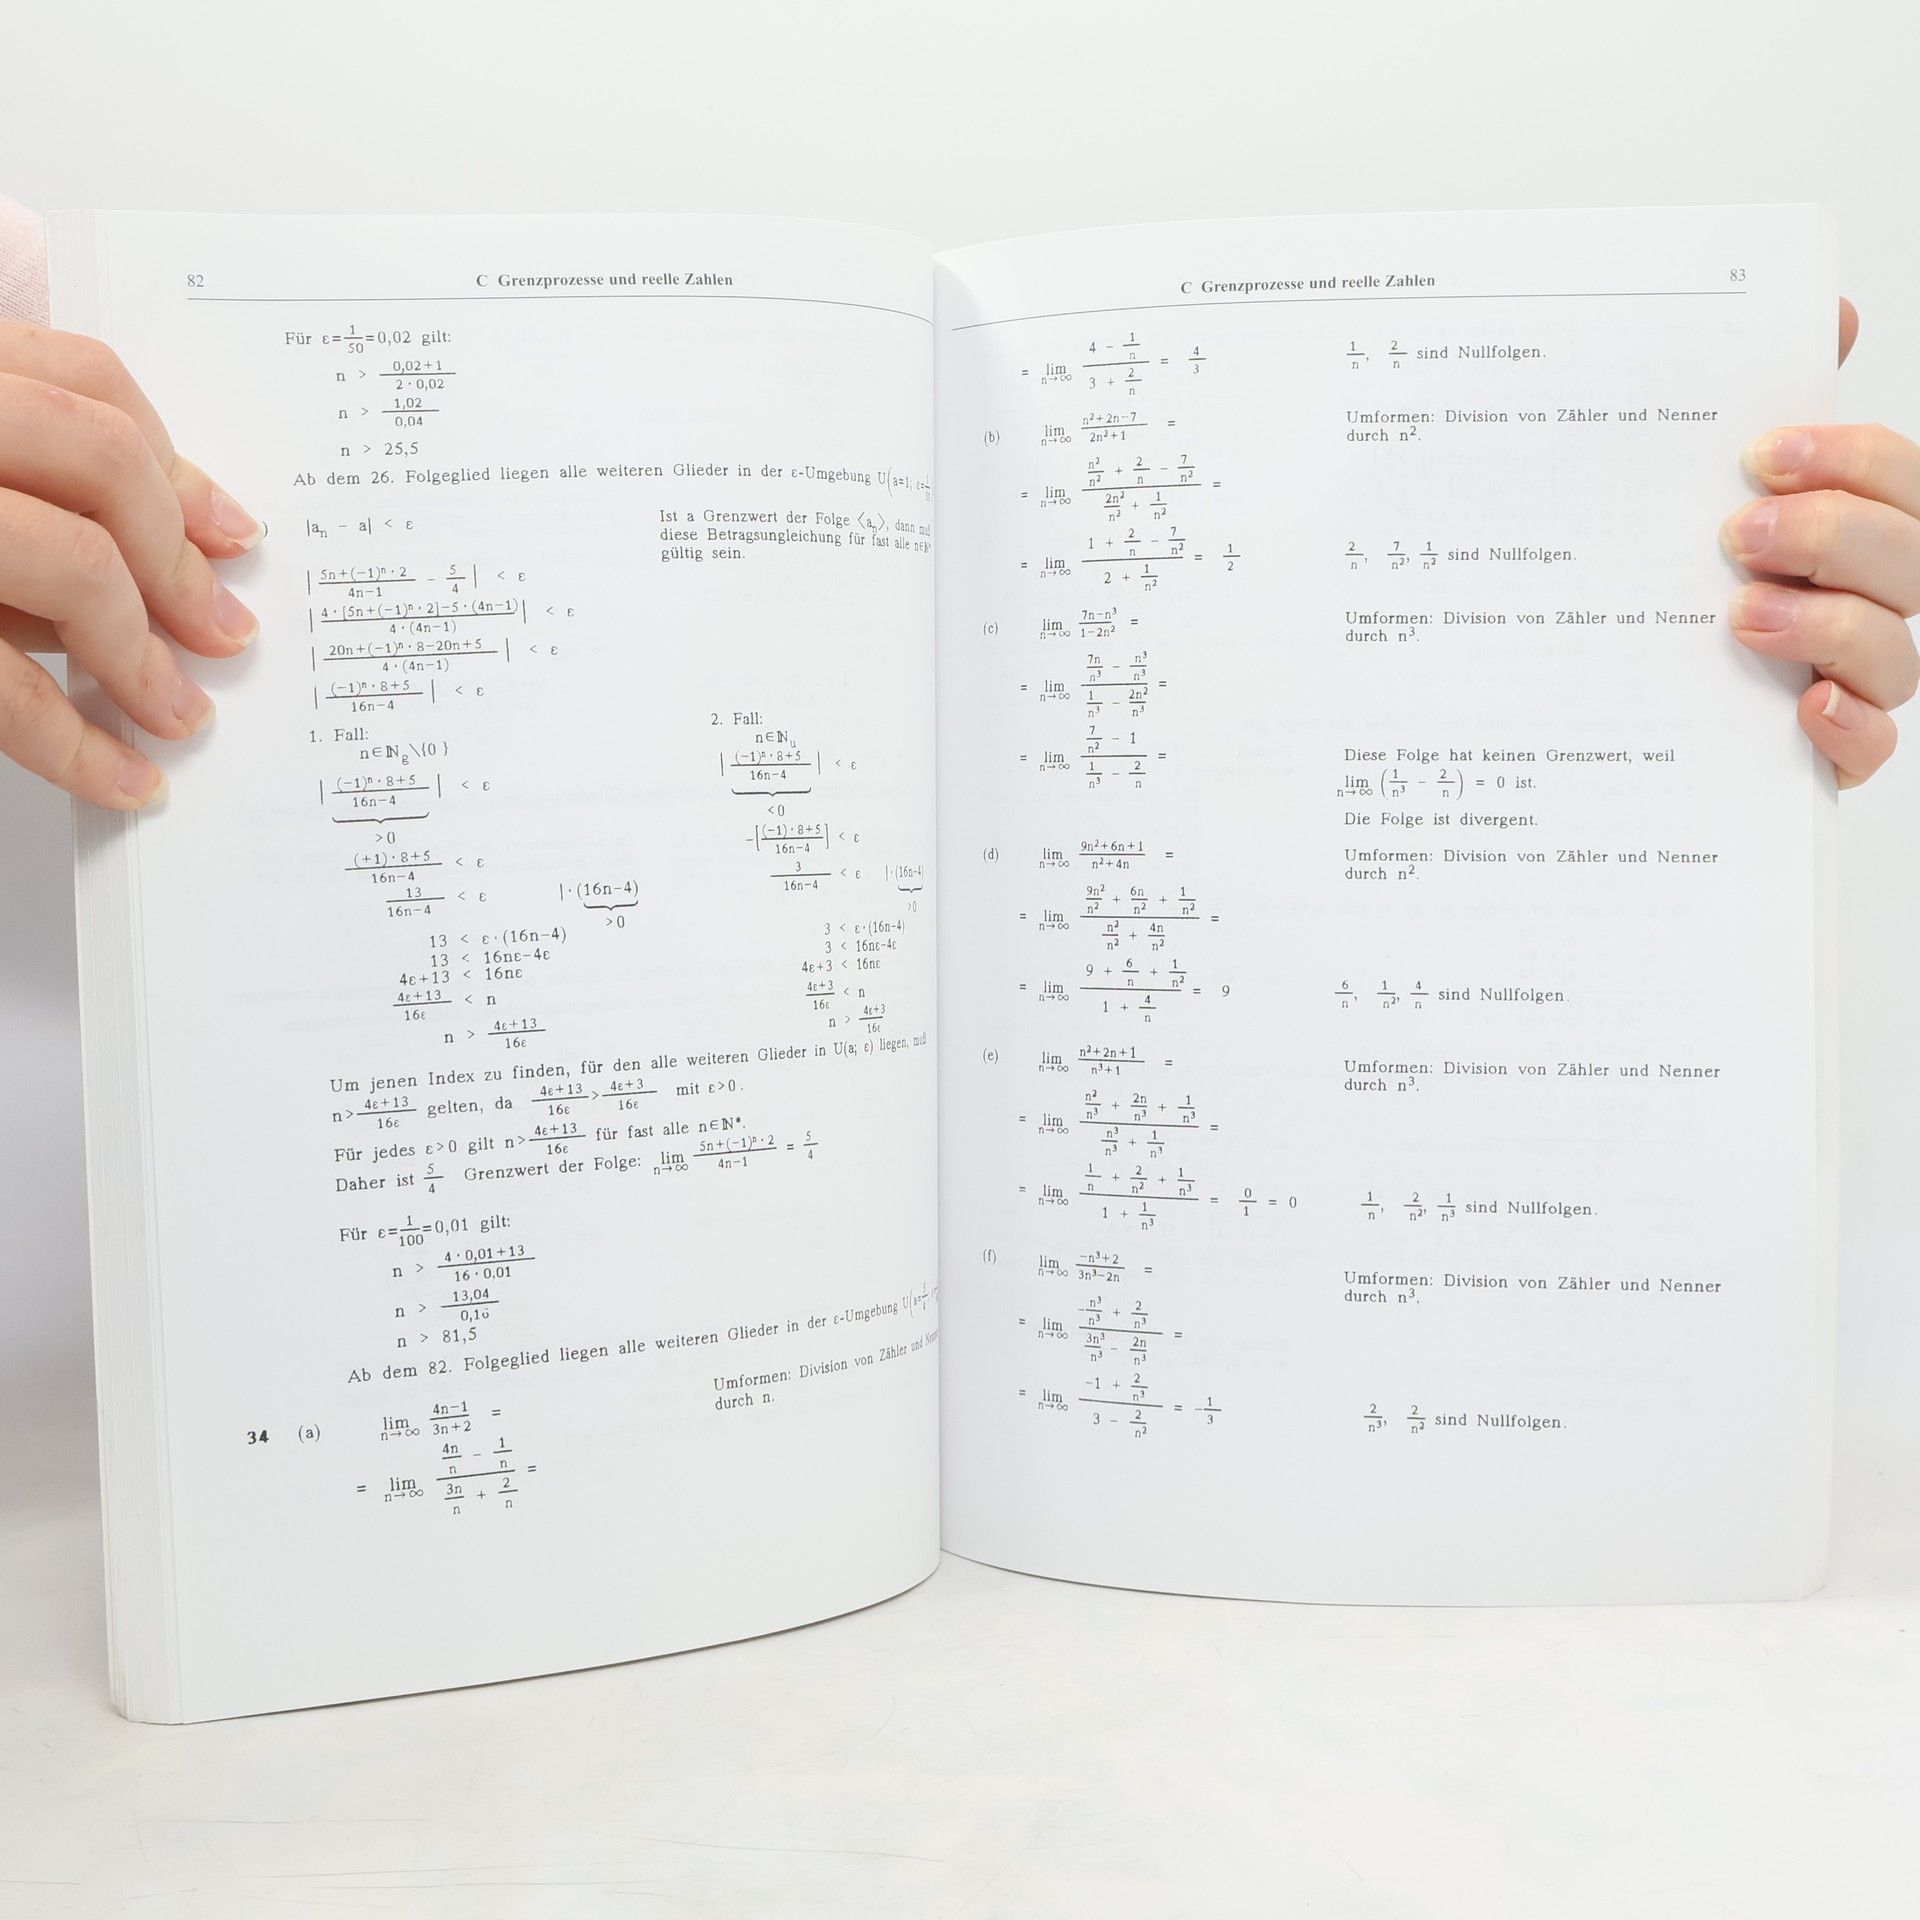 82
C Grenzprozesse und reelle Zahlen
Für ε=1/50=0,02 gilt:
n > (0,02+1)/(2·0,02)
n > 1,02/0,04
n > 25,5
Ab dem 26. Folgeglied liegen alle weiteren Glieder in der ε-Umgebung U(a=1; ε=1/50
) |aₙ - a| < ε
Ist a Grenzwert der Folge ⟨aₙ⟩, dann muß
diese Betragsungleichung für fast alle n∈ℕ*
gültig sein.
|(5n+(-1)ⁿ·2)/(4n-1) - 5/4| < ε
|(4·[5n+(-1)ⁿ·2]-5·(4n-1))/(4·(4n-1))| < ε
|(20n+(-1)ⁿ·8-20n+5)/(4·(4n-1))| < ε
|((-1)ⁿ·8+5)/(16n-4)| < ε
1. Fall:
n∈ℕg\{0}
|((-1)ⁿ·8+5)/(16n-4)| < ε
>0
((+1)·8+5)/(16n-4) < ε
13/(16n-4) < ε |·(16n-4)
>0
13 < ε·(16n-4)
13 < 16nε-4ε
4ε+13 < 16nε
(4ε+13)/16ε < n
n > (4ε+13)/16ε
2. Fall:
n∈ℕu
|((-1)ⁿ·8+5)/(16n-4)| < ε
<0
-[((-1)·8+5)/(16n-4)] < ε
3/(16n-4) < ε |·(16n-4)
>0
3 < ε·(16n-4)
3 < 16nε-4ε
4ε+3 < 16nε
(4ε+3)/16ε < n
n > (4ε+3)/16ε
Um jenen Index zu finden, für den alle weiteren Glieder in U(a; ε) liegen, muß
n>(4ε+13)/16ε gelten, da (4ε+13)/16ε>(4ε+3)/16ε mit ε>0.
Für jedes ε>0 gilt n>(4ε+13)/16ε für fast alle n∈ℕ*.
Daher ist 5/4 Grenzwert der Folge: lim n→∞ (5n+(-1)ⁿ·2)/(4n-1) = 5/4
Für ε=1/100=0,01 gilt:
n > (4·0,01+13)/(16·0,01)
n > 13,04/0,16
n > 81,5
Ab dem 82. Folgeglied liegen alle weiteren Glieder in der ε-Umgebung U(a=5/4
34 (a) lim n→∞ (4n-1)/(3n+2) =
Umformen: Division von Zähler und Nenner
durch n.
= lim n→∞ (4n/n - 1/n)/(3n/n + 2/n) =
C Grenzprozesse und reelle Zahlen
83
= lim n→∞ (4 - 1/n)/(3 + 2/n) = 4/3 1/n, 2/n sind Nullfolgen.
(b) lim n→∞ (n²+2n-7)/(2n²+1) = Umformen: Division von Zähler und Nenner
durch n².
= lim n→∞ (n²/n² + 2/n - 7/n²)/(2n²/n² + 1/n²) =
= lim n→∞ (1 + 2/n - 7/n²)/(2 + 1/n²) = 1/2 2/n, 7/n², 1/n² sind Nullfolgen.
(c) lim n→∞ (7n-n³)/(1-2n²) = Umformen: Division von Zähler und Nenner
durch n³.
= lim n→∞ (7n/n³ - n³/n³)/(1/n³ - 2n²/n³) =
= lim n→∞ (7/n² - 1)/(1/n³ - 2/n) = Diese Folge hat keinen Grenzwert, weil
lim n→∞ (1/n³ - 2/n) = 0 ist.
Die Folge ist divergent.
(d) lim n→∞ (9n²+6n+1)/(n²+4n) = Umformen: Division von Zähler und Nenner
durch n².
= lim n→∞ (9n²/n² + 6n/n² + 1/n²)/(n²/n² + 4n/n²) =
= lim n→∞ (9 + 6/n + 1/n²)/(1 + 4/n) = 9 6/n, 1/n², 4/n sind Nullfolgen.
(e) lim n→∞ (n²+2n+1)/(n³+1) = Umformen: Division von Zähler und Nenner
durch n³.
= lim n→∞ (n²/n³ + 2n/n³ + 1/n³)/(n³/n³ + 1/n³) =
= lim n→∞ (1/n + 2/n² + 1/n³)/(1 + 1/n³) = 0/1 = 0 1/n, 2/n², 1/n³ sind Nullfolgen.
(f) lim n→∞ (-n³+2)/(3n³-2n) = Umformen: Division von Zähler und Nenner
durch n³.
= lim n→∞ (-n³/n³ + 2/n³)/(3n³/n³ - 2n/n³) =
= lim n→∞ (-1 + 2/n³)/(3 - 2/n²) = -1/3 2/n³, 2/n² sind Nullfolgen.